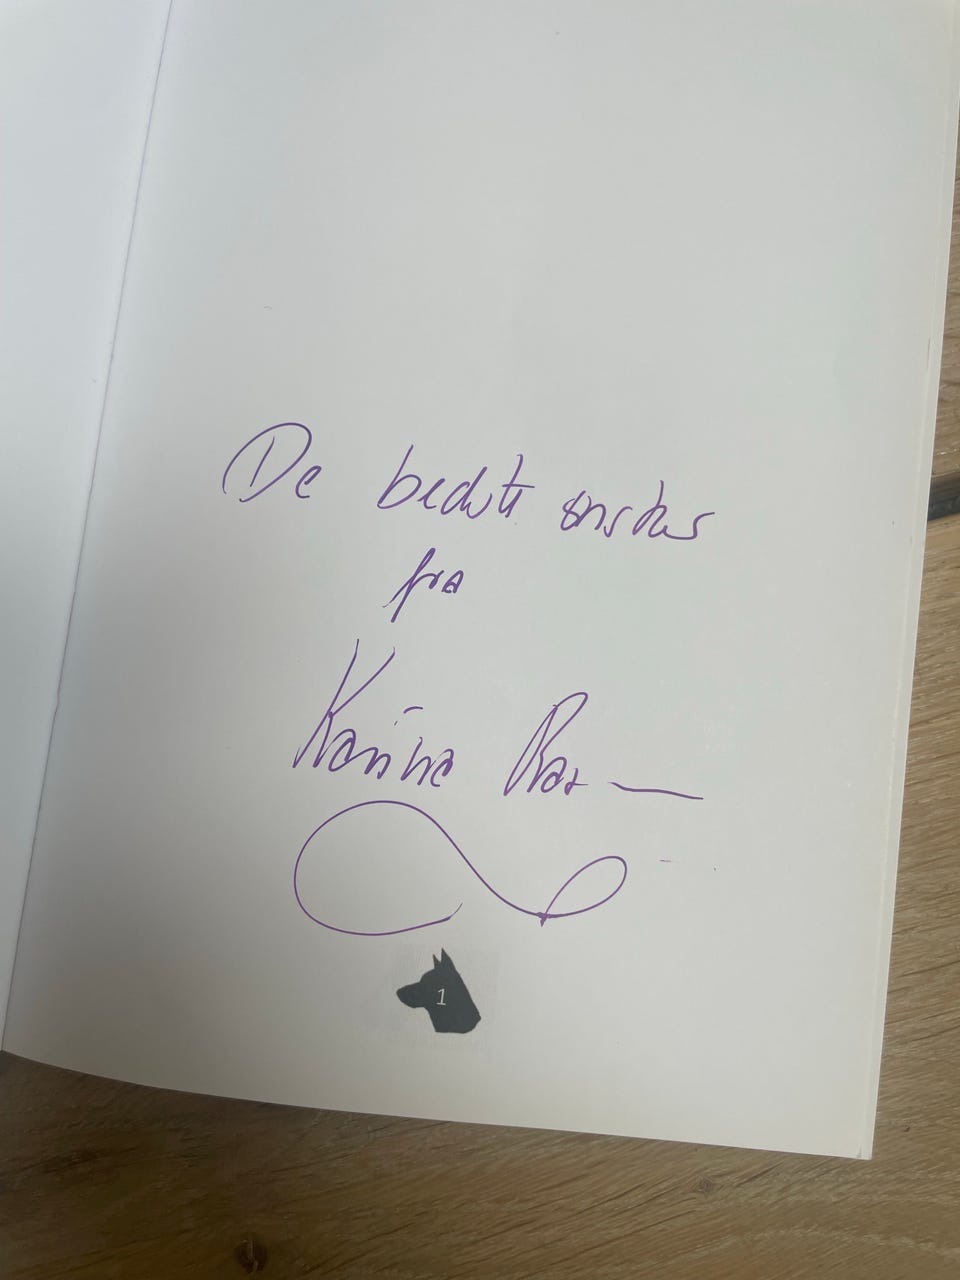 De bedste ønsker
fra
Karina
1